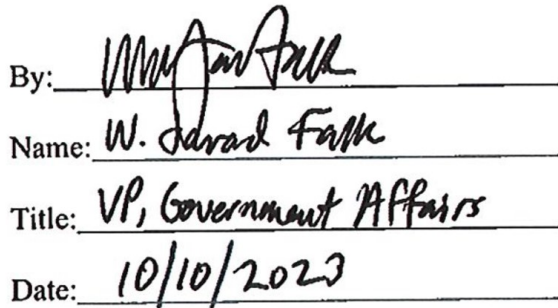 By:
Name: W. Jarad Falk
Title: VP, Government Affairs
Date: 10/10/2023